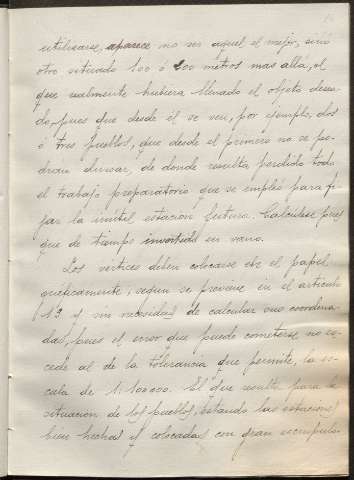 utilizarse, aparece no ser aquel el mejor, sinó
otro situado 100 ó 200 metros mas allá, el
que realmente hubiera llenado el objeto desea-
do, pues que desde él se ven, por ejemplo, dos
ó tres pueblos, que desde el primero no se po-
dran divisar, de donde resulta perdido todo
el trabajo preparatorio que se empleó para fi-
jar la inútil estacion futura. Calculese pues
que de tiempo invertido en vano.
Los vertices deben colocarse en el papel
graficamente, segun se previene en el articulo
19 y sin necesidad de calcular sus coordena-
das, pues el error que puede cometerse no es-
cede al de la tolerancia que permite, la es-
cala de 1:100.000. El que resulte para la
situacion de los pueblos, estando las estaciones
bien hechas y colocadas con gran escrupulo-